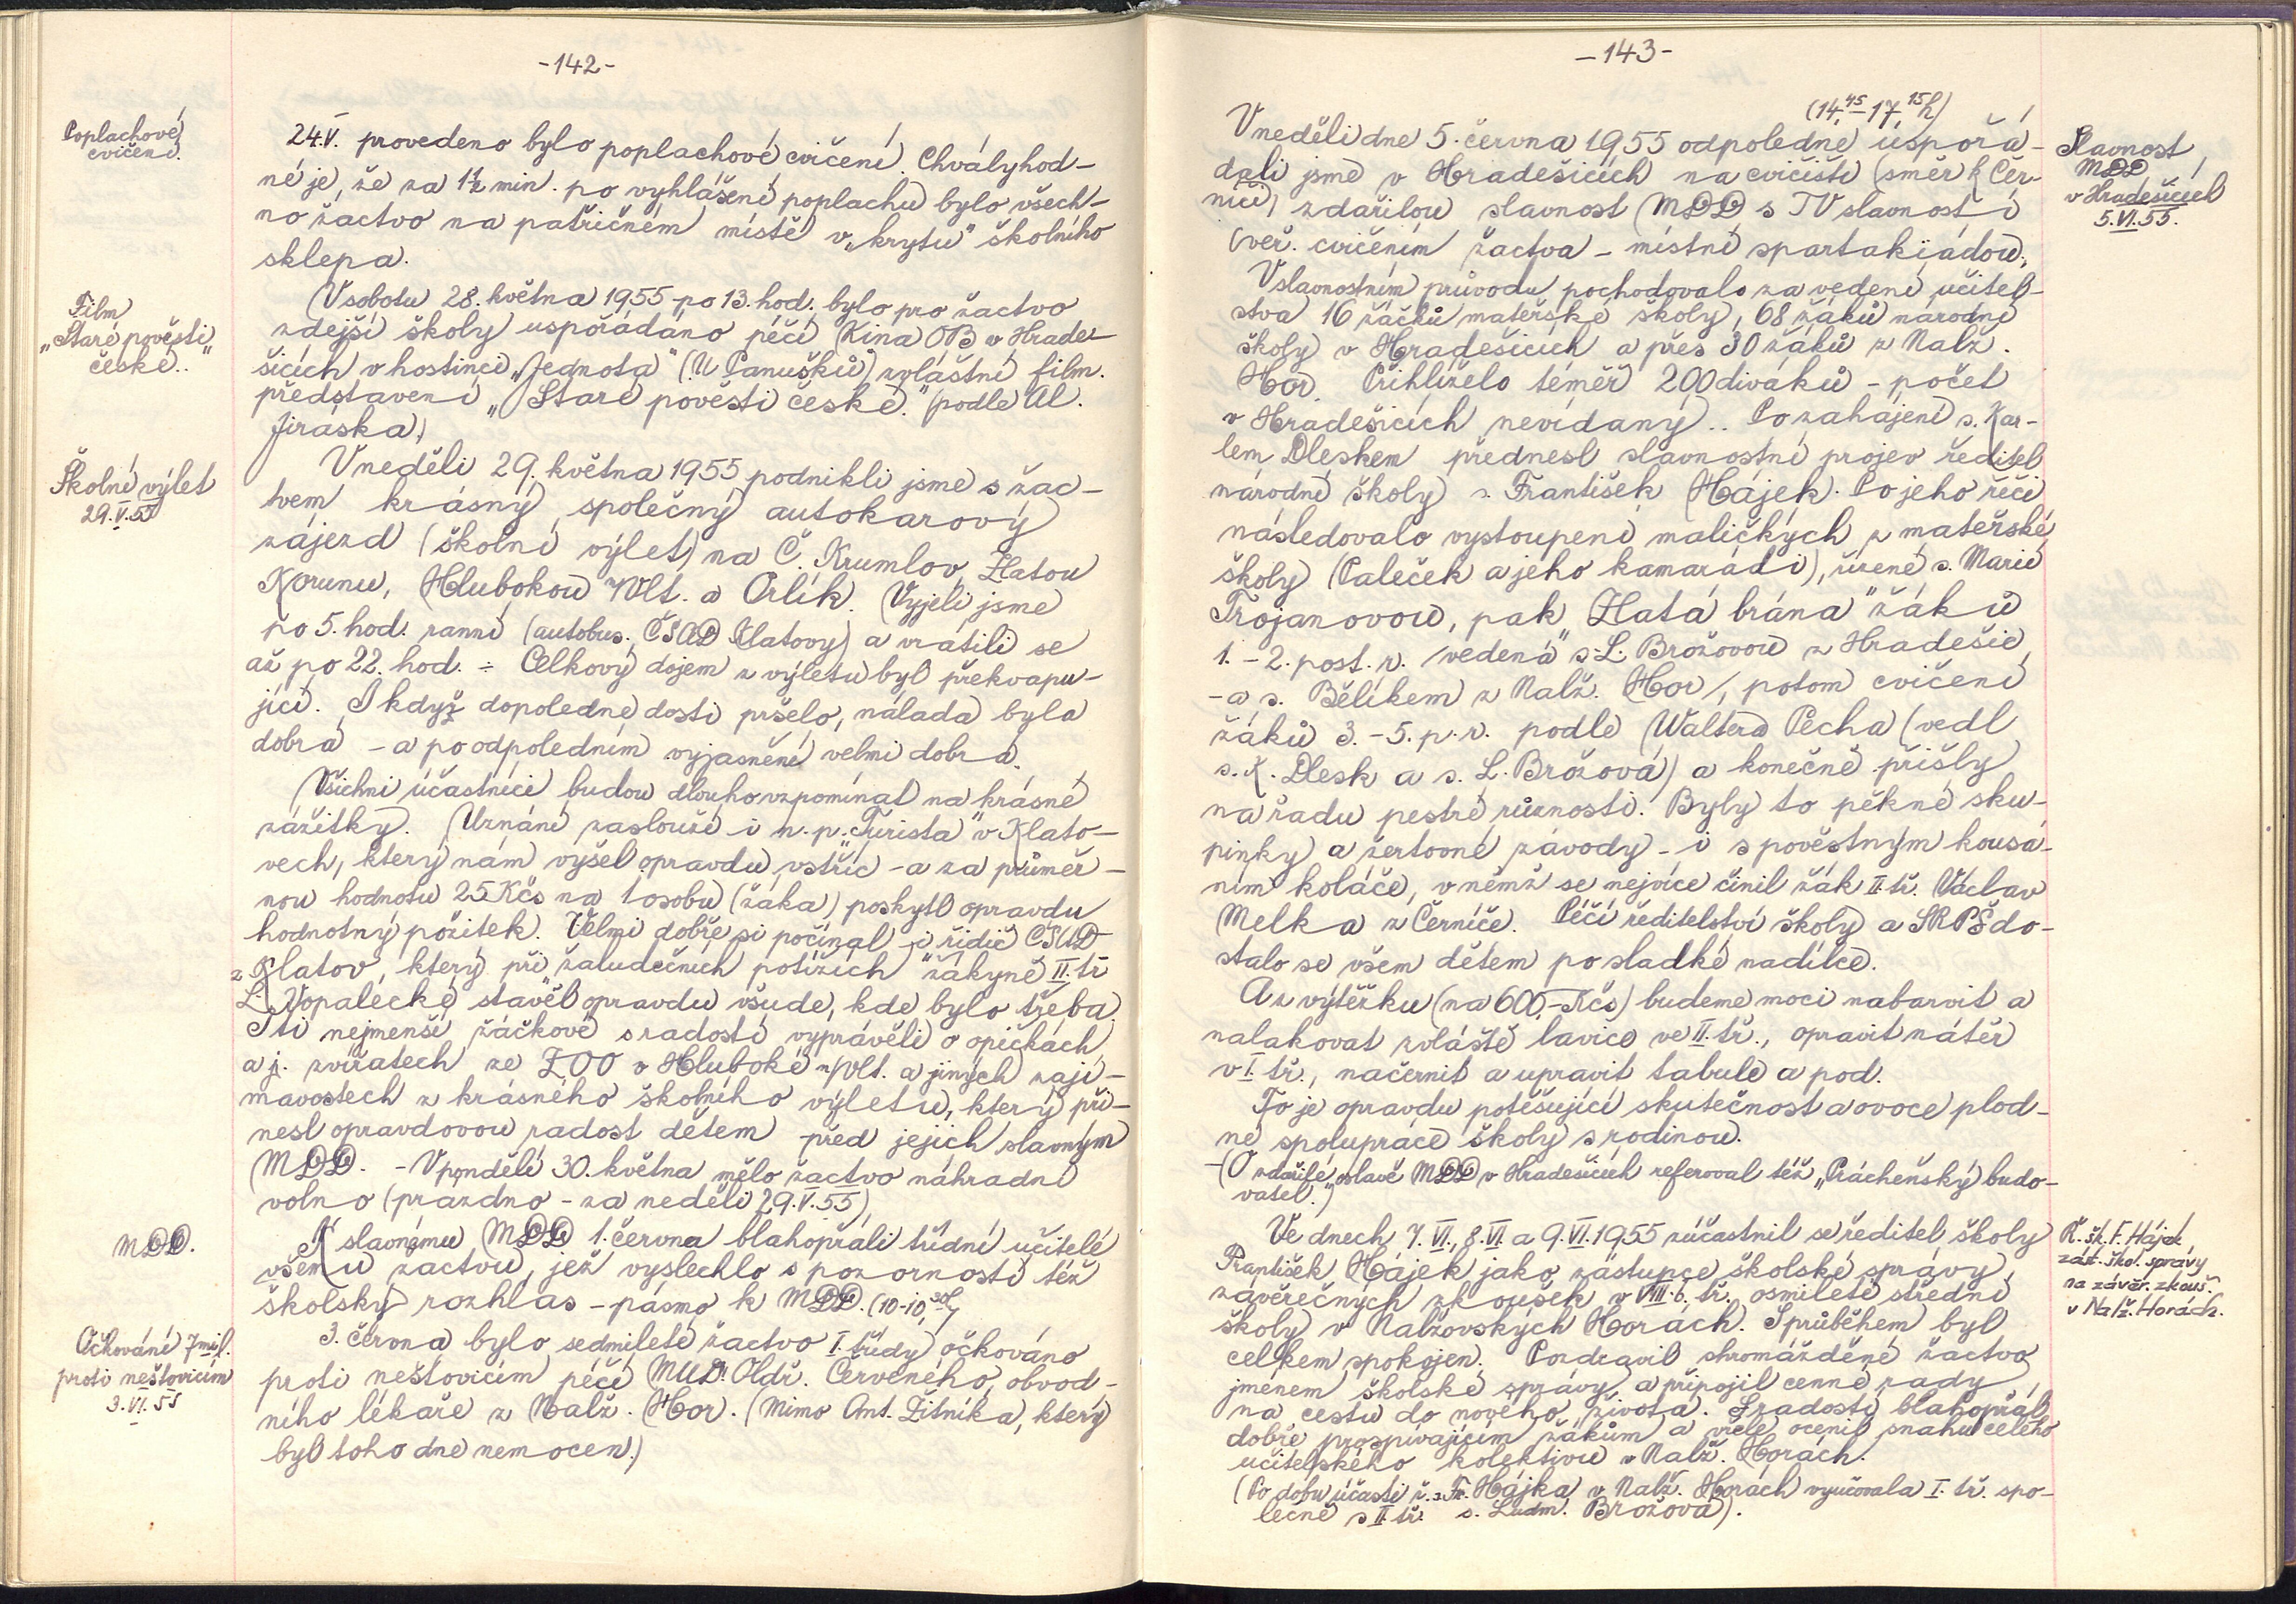 -142-
Poplachové
cvičení.
24.V. provedeno bylo poplachové cvičení. Chvályhod-
né je, že za 1½ min. po vyhlášení poplachu bylo všech-
no žactvo na patřičném místě v „krytu" školního
sklepa.
Film
„Staré pověsti
české."
V sobotu 28. května 1955 po 13. hod. bylo pro žactvo
zdejší školy uspořádáno péčí Kina OB v Hrade-
šicích v hostinci „Jednota" (U Panušků) zvláštní film.
představení „Staré pověsti české." (podle Al.
Jiráska)
Školní výlet
29.V.55
V neděli 29. května 1955 podnikli jsme s žac-
tvem krásný společný autokarový
zájezd (školní výlet) na Č. Krumlov, Zlatou
Korunu, Hlubokou n/Vlt. a Orlík. Vyjeli jsme
po 5. hod. ranní (autobus. ČSAD Klatovy) a vrátili se
až po 22. hod. - Celkový dojem z výletu byl překvapu-
jící. I když dopoledne dosti pršelo, nálada byla
dobrá - a po odpoledním vyjasnění velmi dobrá.
Všichni účastníci budou dlouho vzpomínat na krásné
zážitky. Uznání zaslouží i n.p. „Turista" v Klato-
vech, který nám vyšel opravdu vstříc - a za průměr-
nou hodnotu 25 Kčs na 1 osobu (žáka) poskytl opravdu
hodnotný požitek. Velmi dobře si počínal i řidič ČSAD
z Klatov, který při „žaludečních potížích" žákyně II. tř.
L. Vopalecké stavěl opravdu všude, kde bylo třeba.
I ti nejmenší žáčkové s radostí vyprávěli o opičkách
a j. zvířatech ze ZOO v Hluboké n/Vlt. a jiných zají-
mavostech z krásného školního výletu, který při-
nesl opravdovou radost dětem před jejich slavným
MDD. - V pondělí 30. května mělo žactvo náhradní
volno (prázdno - za neděli 29.V.55)
MDD.
K slavnému MDD 1. června blahopřáli třídní učitelé
všemu žactvu, jež vyslechlo s pozorností též
školský rozhlas - pásmo k MDD. (10-10,30h)
Očkování 7mil.
proti neštovicím
3.VI.55
3. června bylo sedmileté žactvo I. třídy očkováno
proti neštovicím péčí MUDr. Oldř. Červeného, obvod-
ního lékaře z Nalž. Hor. (Mimo Ant. Žitníka, který
byl toho dne nemocen.)
-143-
(14,45-17,15h)
V neděli dne 5. června 1955 odpoledne uspořá-
dali jsme v Hradešicích na cvičišti (směr k Čer-
níči) zdařilou slavnost MDD s TV slavností
(veř. cvičením žactva - místní spartakiádou.
Slavnost
MDD
v Hradešicích
5.VI.55.
V slavnostním průvodu pochodovalo za vedení učitel-
stva 16 žáčků mateřské školy, 68 žáků národní
školy v Hradešicích a přes 30 žáků z Nalž.
Hor. Přihlíželo téměř 200 diváků - počet
v Hradešicích nevídaný.. Po zahájení s. Kar-
lem Dleskem přednesl slavnostní projev ředitel
národní školy s. František Hájek. Po jeho řeči
následovalo vystoupení maličkých z mateřské
školy (Paleček a jeho kamarádi), řízené s. Marií
Trojanovou, pak „Zlatá brána" žáků
1.-2. post. r. /vedená s. L. Brožovou z Hradešic
- a s. Bělíkem z Nalž. Hor/, potom cvičení
žáků 3.-5. p. r. podle Waltera Pecha (vedl
s. K. Dlesk a s. L. Brožová) a konečně přišly
na řadu pestré různosti. Byly to pěkné sku-
pinky a žertovné závody - i s pověstným kousá-
ním koláče, v němž se nejvíce činil žák II. tř. Václav
Melka z Černíče. Péčí ředitelství školy a SRPŠ do-
stalo se všem dětem po sladké nadílce.
A z výtěžku (na 600,-Kčs) budeme moci nabarvit a
nalakovat zvláště lavice ve II. tř., opravit nátěr
v I. tř., načernit a upravit tabule a pod.
To je opravdu potěšující skutečnost a ovoce plod-
né spolupráce školy s rodinou.
-(O zdařilé oslavě MDD v Hradešicích referoval též „Práchenský budo-
vatel.")
Ř. šk. F. Hájek
zást. škol. správy
na závěr. zkouš.
v Nalž. Horách.
Ve dnech 7.VI., 8.VI. a 9.VI.1955 zúčastnil se ředitel školy
František Hájek jako zástupce školské správy
závěrečných zkoušek v VIII.b. tř. osmileté střední
školy v Nalžovských Horách. S průběhem byl
celkem spokojen. Pozdravil shromážděné žactvo
jménem školské správy a připojil cenné rady
na cestu do nového „života". S radostí blahopřál
dobře prospívajícím žákům a vřele ocenil snahu celého
učitelského kolektivu v Nalž. Horách.
(Po dobu účasti ř. s. Fr. Hájka v Nalž. Horách vyučovala I. tř. spo-
lečně s II. tř. s. Ludm. Brožová).